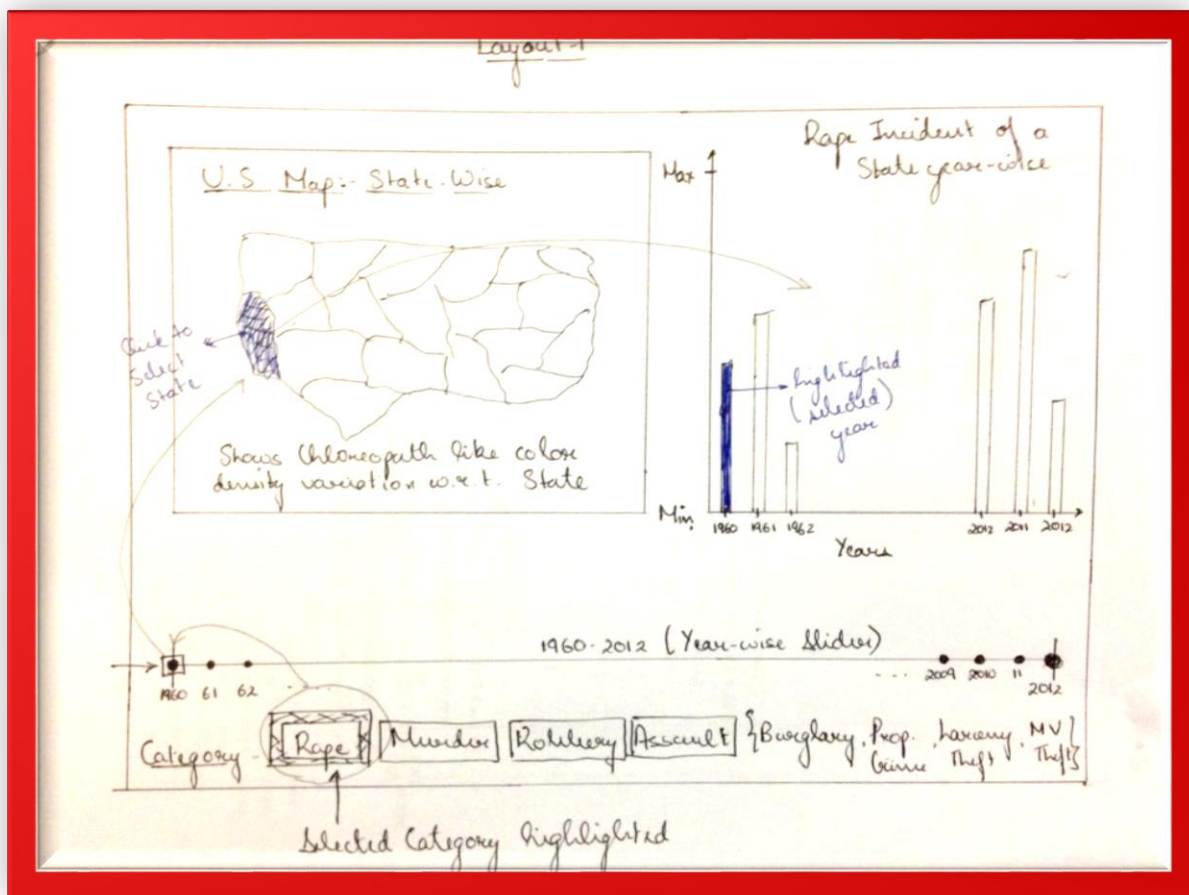 Layout-1
Rape Incident of a
State year-wise
U.S Map:- State-Wise
Click to
Select
State
Shows Chloreopath like color
density variation w.r.t. State
Max
Min
highlighted
(selected)
year
1960 1961 1962 2012 2011 2012
Years
1960-2012 (Year-wise Slider)
1960 61 62 ... .... 2009 2010 11 2012
Category - Rape Murder Robbery Assault {Burglary, Prop. Crime, Larceny Theft, MV Theft}
Selected Category highlighted